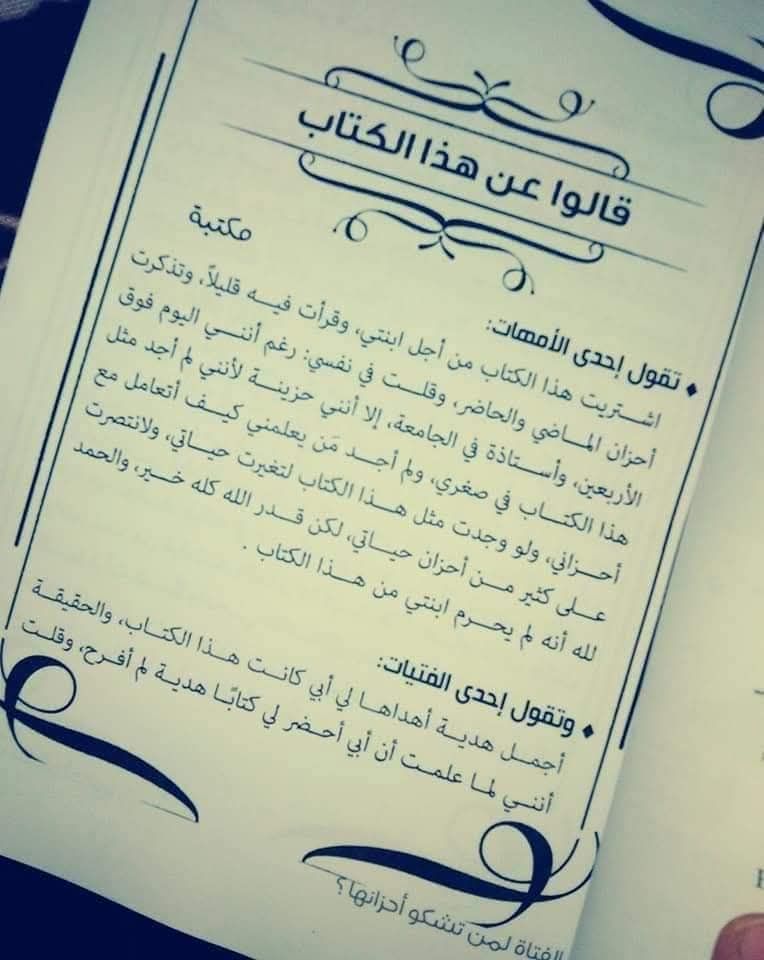 قالوا عن هذا الكتاب
مكتبة
♦ تقول إحدى الأمهات:
اشتريت هذا الكتاب من أجل ابنتي، وقرأت فيه قليلاً، وتذكرت
أحزان الماضي والحاضر، وقلت في نفسي: رغم أنني اليوم فوق
الأربعين، وأستاذة في الجامعة، إلا أنني حزينة لأنني لم أجد مثل
هذا الكتاب في صغري، ولم أجد مَن يعلمني كيف أتعامل مع
أحزاني، ولو وجدت مثل هذا الكتاب لتغيرت حياتي، ولانتصرت
على كثير من أحزان حياتي، لكن قدر الله كله خير، والحمد
لله أنه لم يحرم ابنتي من هذا الكتاب .
♦ وتقول إحدى الفتيات:
أجمل هدية أهداها لي أبي كانت هذا الكتاب، والحقيقة
أنني لما علمت أن أبي أحضر لي كتابًا هدية لم أفرح، وقلت
الفتاة لمن تشكو أحزانها؟